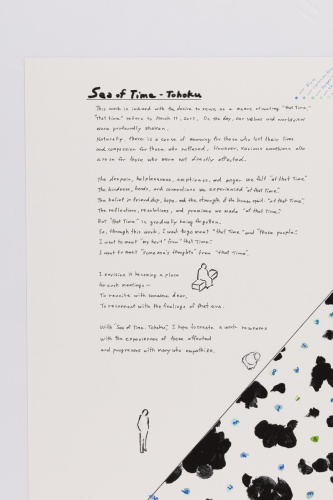 Sea of Time - Tohoku
This work is imbued with the desire to serve as a means of visiting "that Time."
"That time" refers to March 11, 2011. On the day, our values and worldview
were profoundly shaken.
Naturally, there is a sense of mourning for those who lost their lives
and compassion for those who suffered. However, various emotions also
arose for those who were not directly affected.
The despair, helplessness, emptiness, and anger we felt "at that Time."
The kindness, bonds, and connections we experienced "at that time."
The belief in friendship, hope, and the strength of the human spirit "at that Time."
The reflections, resolutions, and promises we made "at that Time."
But "that Time" is gradually being forgotten.
So, through this work, I want to go meet "that Time" and "those people."
I want to meet "my heart" from "that Time."
I want to meet "someone's thoughts" from "that Time".
I envision it becoming a place
for such meetings—
To reunite with someone dear,
To reconnect with the feelings of that era.
With "Sea of Time - Tohoku," I hope to create a work
with the experiences of those affected
and progresses with many who empathize.